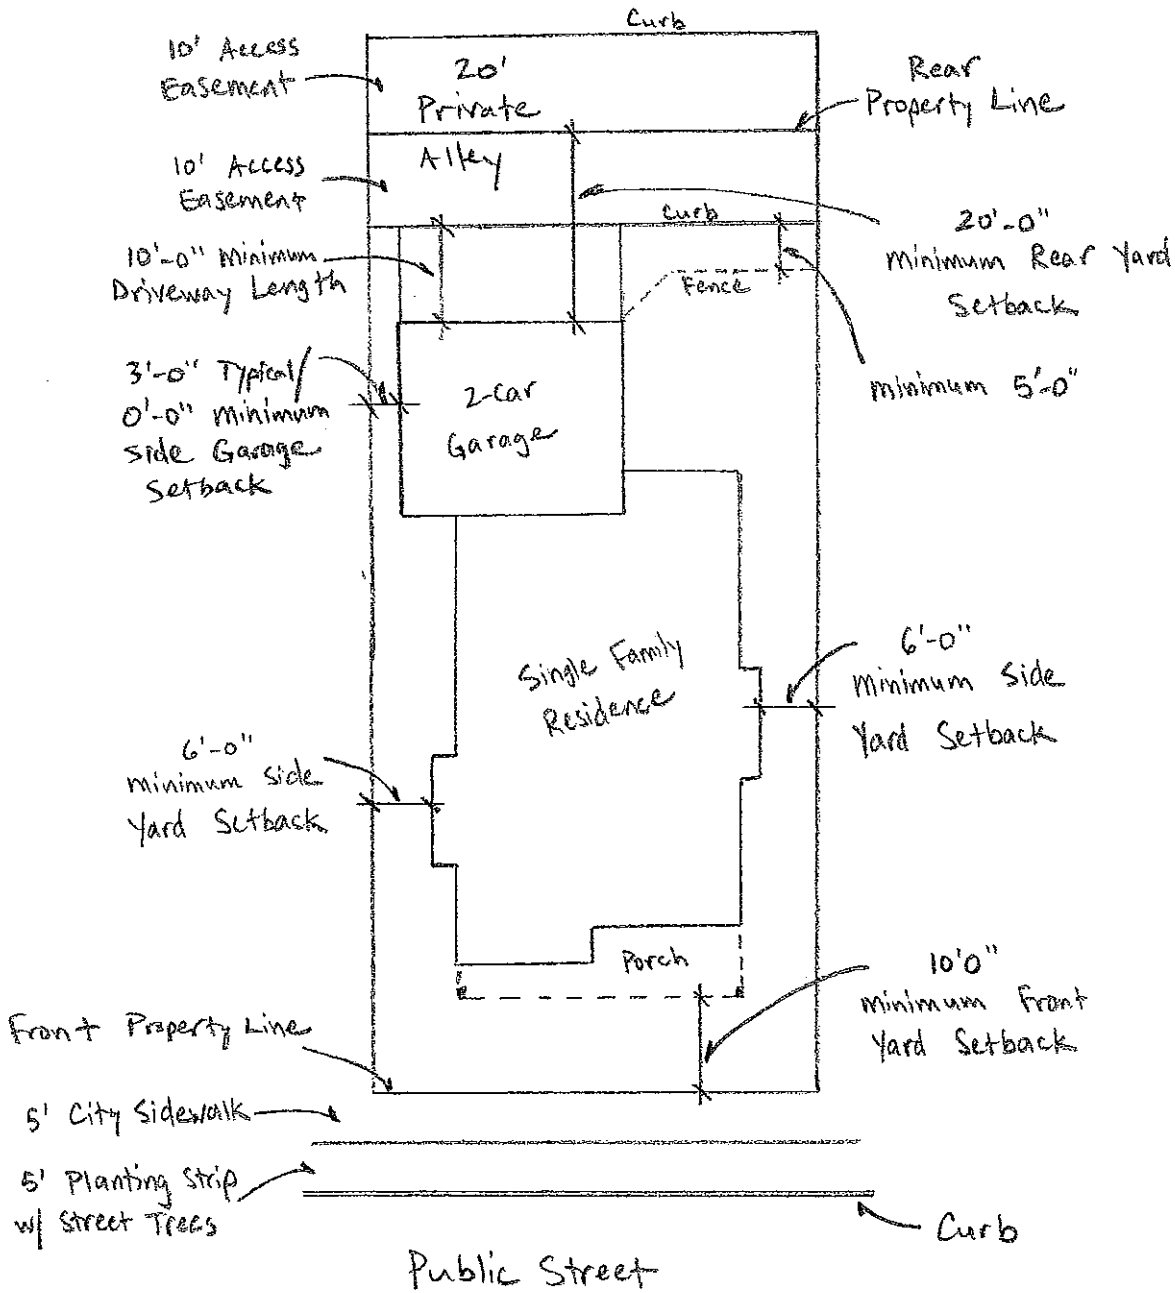 Curb
10' Access
Easement
20'
Private
Alley
Rear
Property Line
10' Access
Easement
Curb
20'-0"
minimum Rear Yard
Setback
10'-0" minimum
Driveway Length
Fence
minimum 5'-0"
3'-0" Typical/
0'-0" minimum
side Garage
Setback
2-Car
Garage
Single Family
Residence
6'-0"
minimum side
Yard Setback
6'-0"
minimum side
Yard Setback
Porch
10'0"
minimum Front
Yard Setback
Front Property Line
5' City Sidewalk
5' Planting Strip
w/ Street Trees
Curb
Public Street